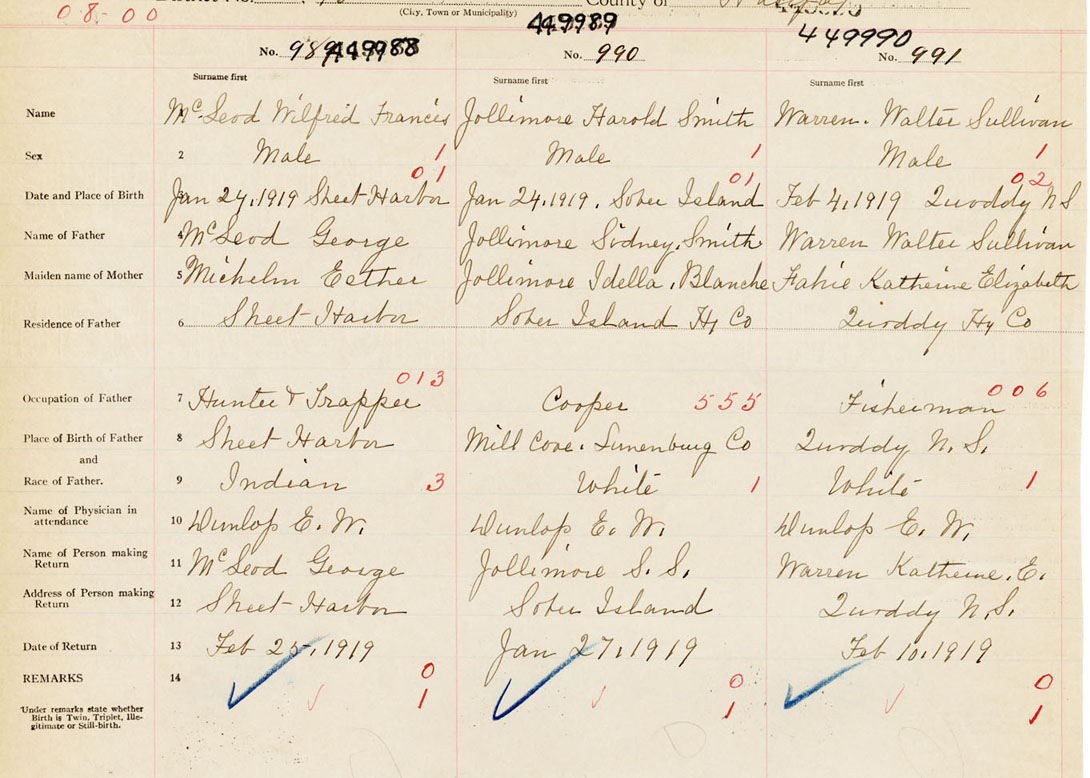 08-00
County of
(City, Town or Municipality)
449989
449990
No. 989 449988 No. 990 No. 991
Surname first Surname first Surname first
Name McLeod Wilfred Francis Jollimore Harold Smith Warren. Walter Sullivan
Sex 2 Male 1 Male 1 Male 1
01 01 02
Date and Place of Birth Jan 24, 1919 Sheet Harbor Jan 24, 1919, Sober Island Feb 4, 1919 Quoddy N S
Name of Father 4 McLeod George Jollimore Sidney, Smith Warren Walter Sullivan
Maiden name of Mother 5 Michelm Esther Jollimore Idella, Blanche Fahie Katherine Elizabeth
Residence of Father 6 Sheet Harbor Sober Island Hx Co Quoddy Hx Co
013 006
Occupation of Father 7 Hunter & Trapper Cooper 555 Fisherman
Place of Birth of Father 8 Sheet Harbor Mill Cove. Lunenburg Co Quoddy N. S.
and
Race of Father. 9 Indian 3 White 1 White 1
Name of Physician in
attendance 10 Dunlop E. W. Dunlop E. W. Dunlop E. W.
Name of Person making
Return 11 McLeod George Jollimore S. S. Warren Katherine. E.
Address of Person making
Return 12 Sheet Harbor Sober Island Quoddy N.S.
Date of Return 13 Feb 25, 1919 Jan 27, 1919 Feb 10, 1919
REMARKS 14 0 0 0
1 1 1
Under remarks state whether
Birth is Twin, Triplet, Ille-
gitimate or Still-birth.